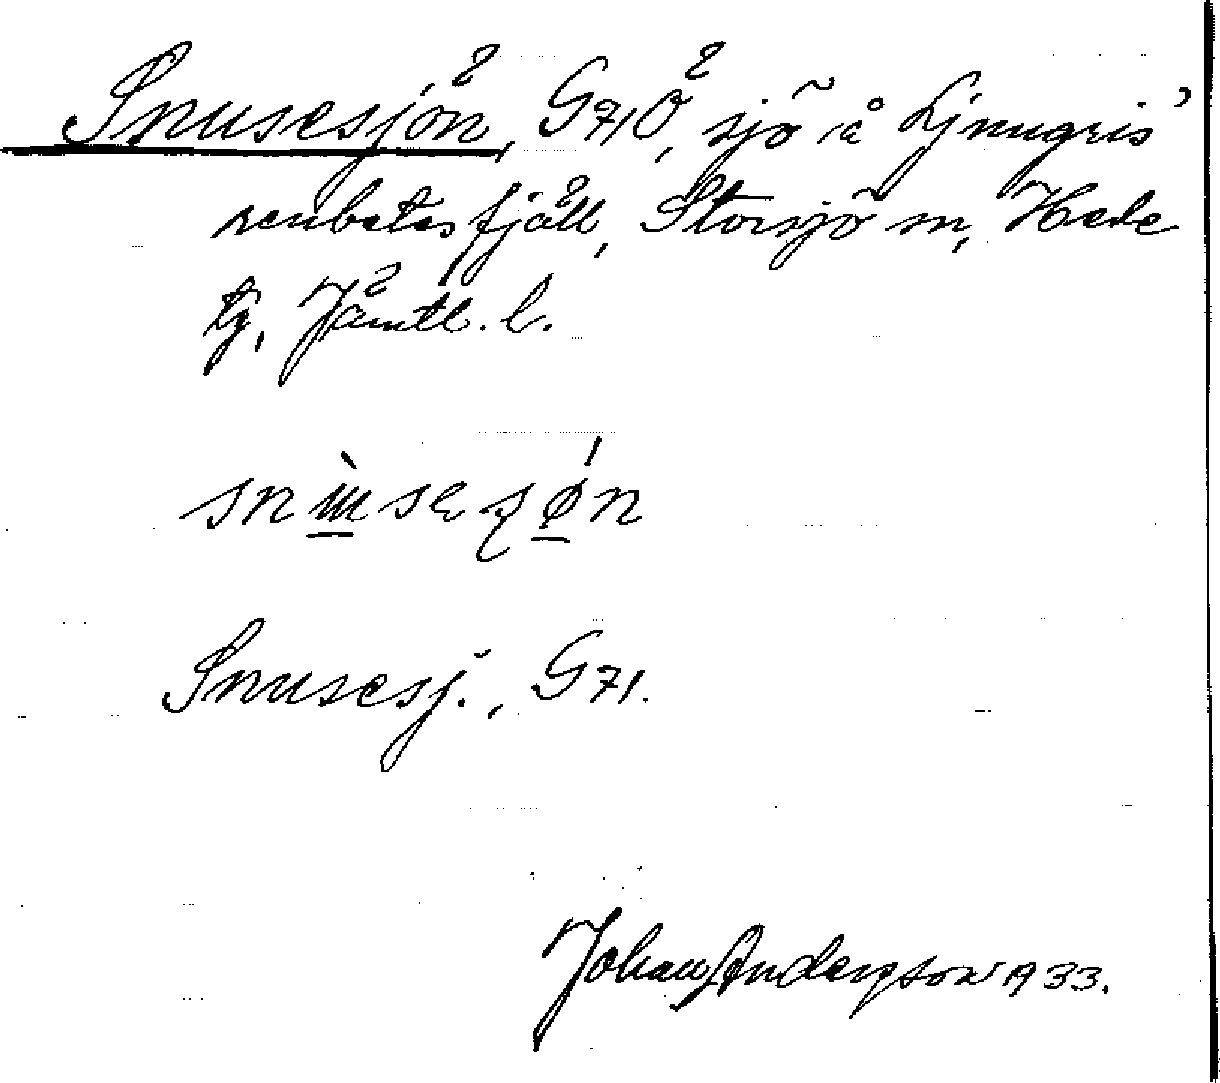 Snusesjön, G71Ö, sjö å Ljunugris
renbetesfjäll, Storsjö sn, Hede
tg, Jämtl. l.
Snusesj., G71.
Johan Andersson 1933.